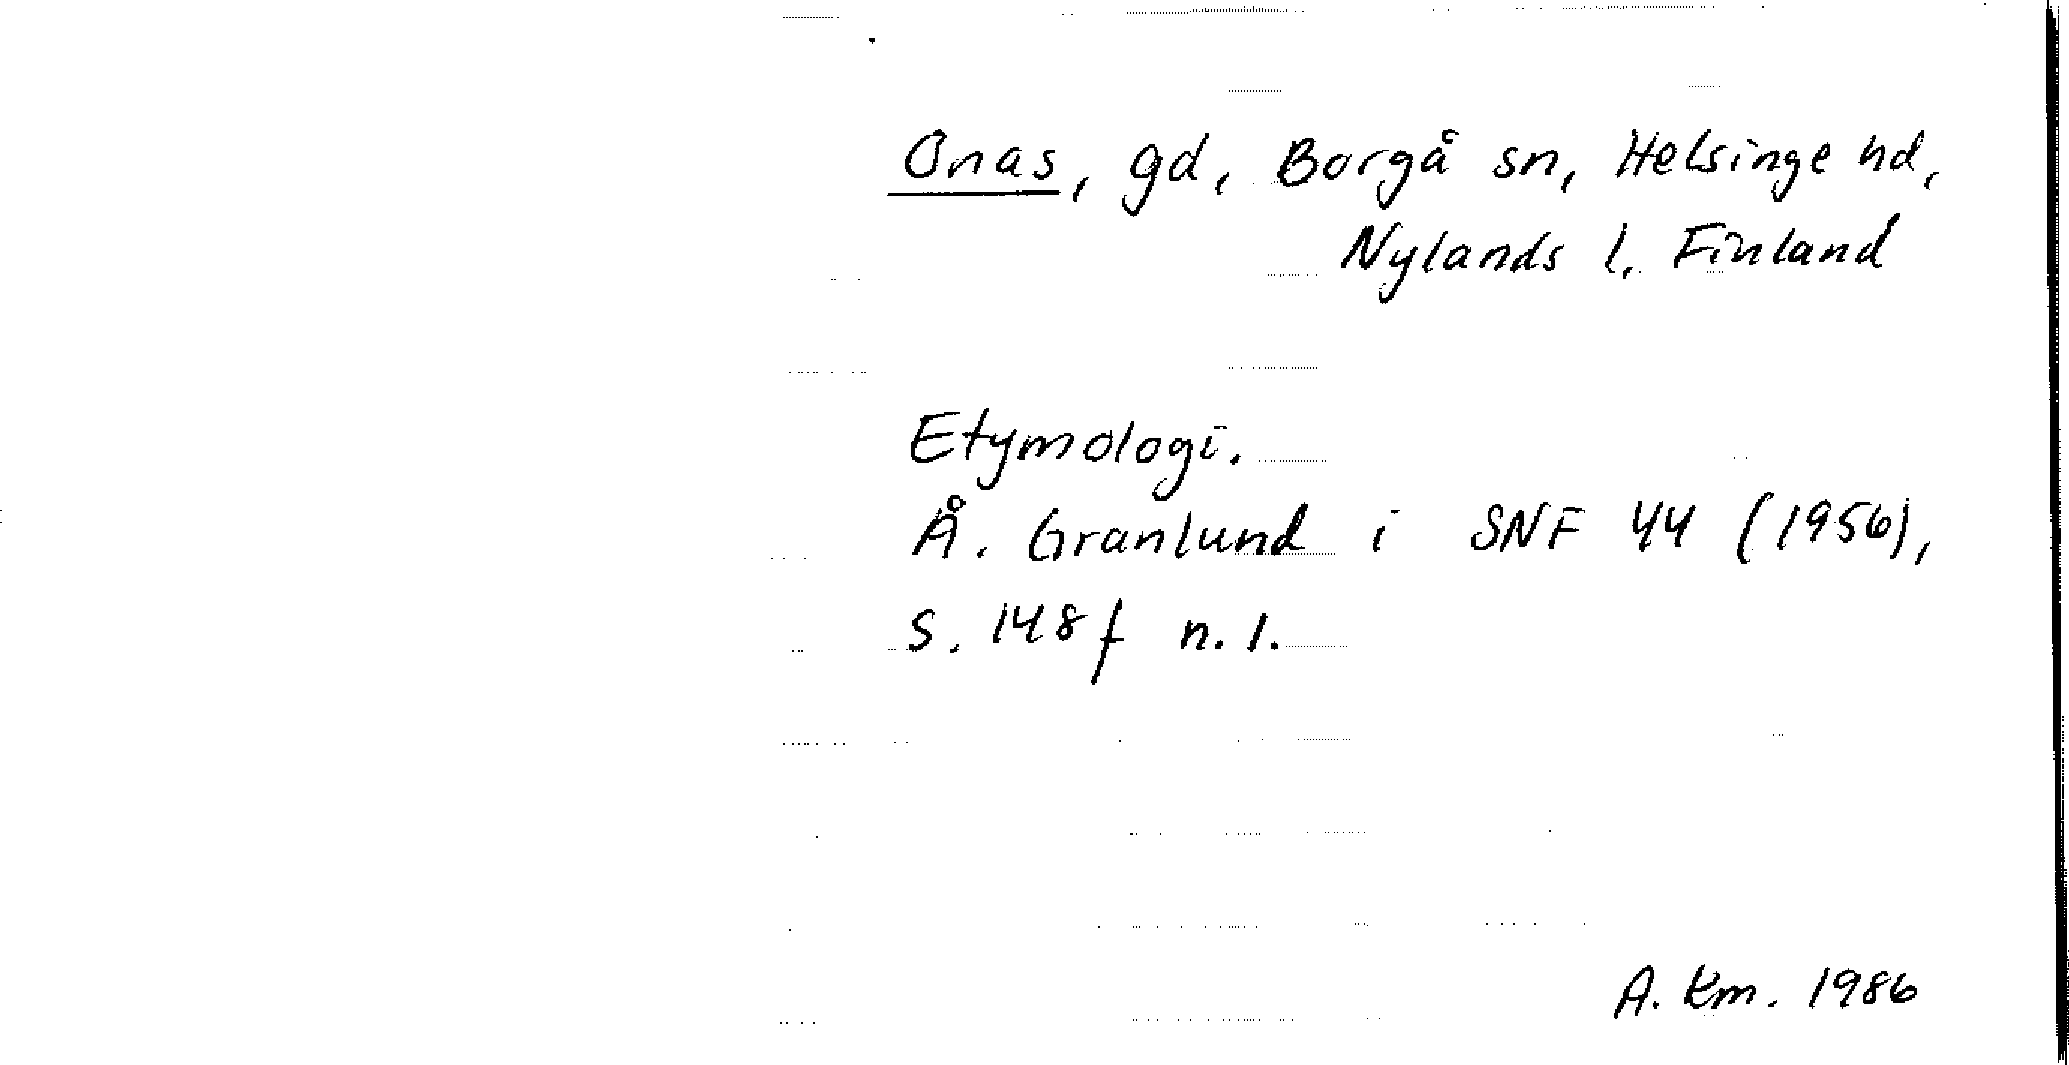 Onas, gd, Borgå sn, Helsinge hd,
Nylands l, Finland
Etymologi.
Å. Granlund i SNF 44 (1956),
S. 148 f n. 1.
A. Km. 1986